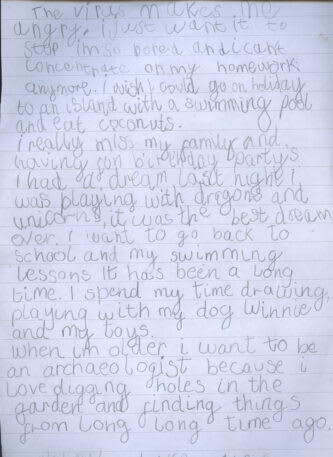 The virus makes me
angry. i just want it to
stop im so bored and i cant
concentrate on my homework
anymore. i wish i could go on holiday
to an island with a swimming pool
and eat coconuts.
i really miss my family and
having fun birthday partys
I had a dream last night i
was playing with dragons and
unicorns, it was the best dream
ever. i want to go back to
school and my swimming
lessons It has been a long
time. I spend my time drawing,
playing with my dog Winnie
and my toys.
when im older i want to be
an archaeologist because i
love digging holes in the
garden and finding things
from long long time ago.